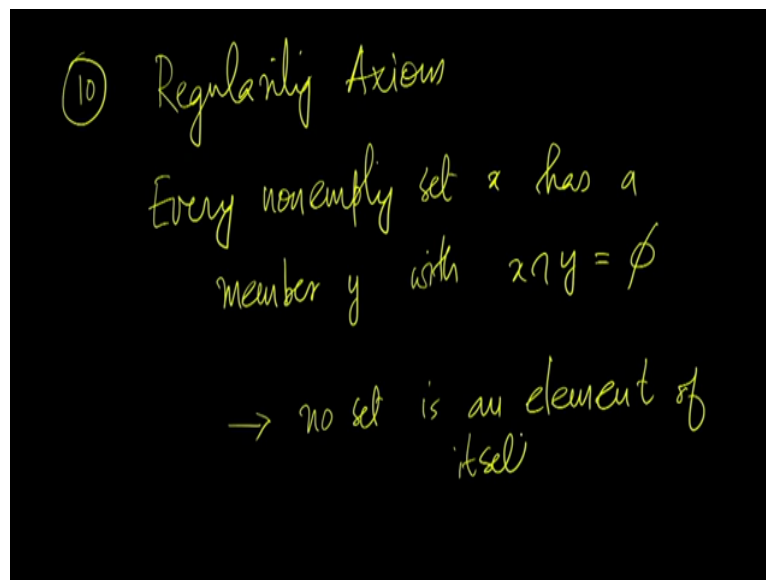 ⑩ Regularity Axiom
Every nonempty set x has a
member y with x∩y = ϕ
→ no set is an element of
itsel